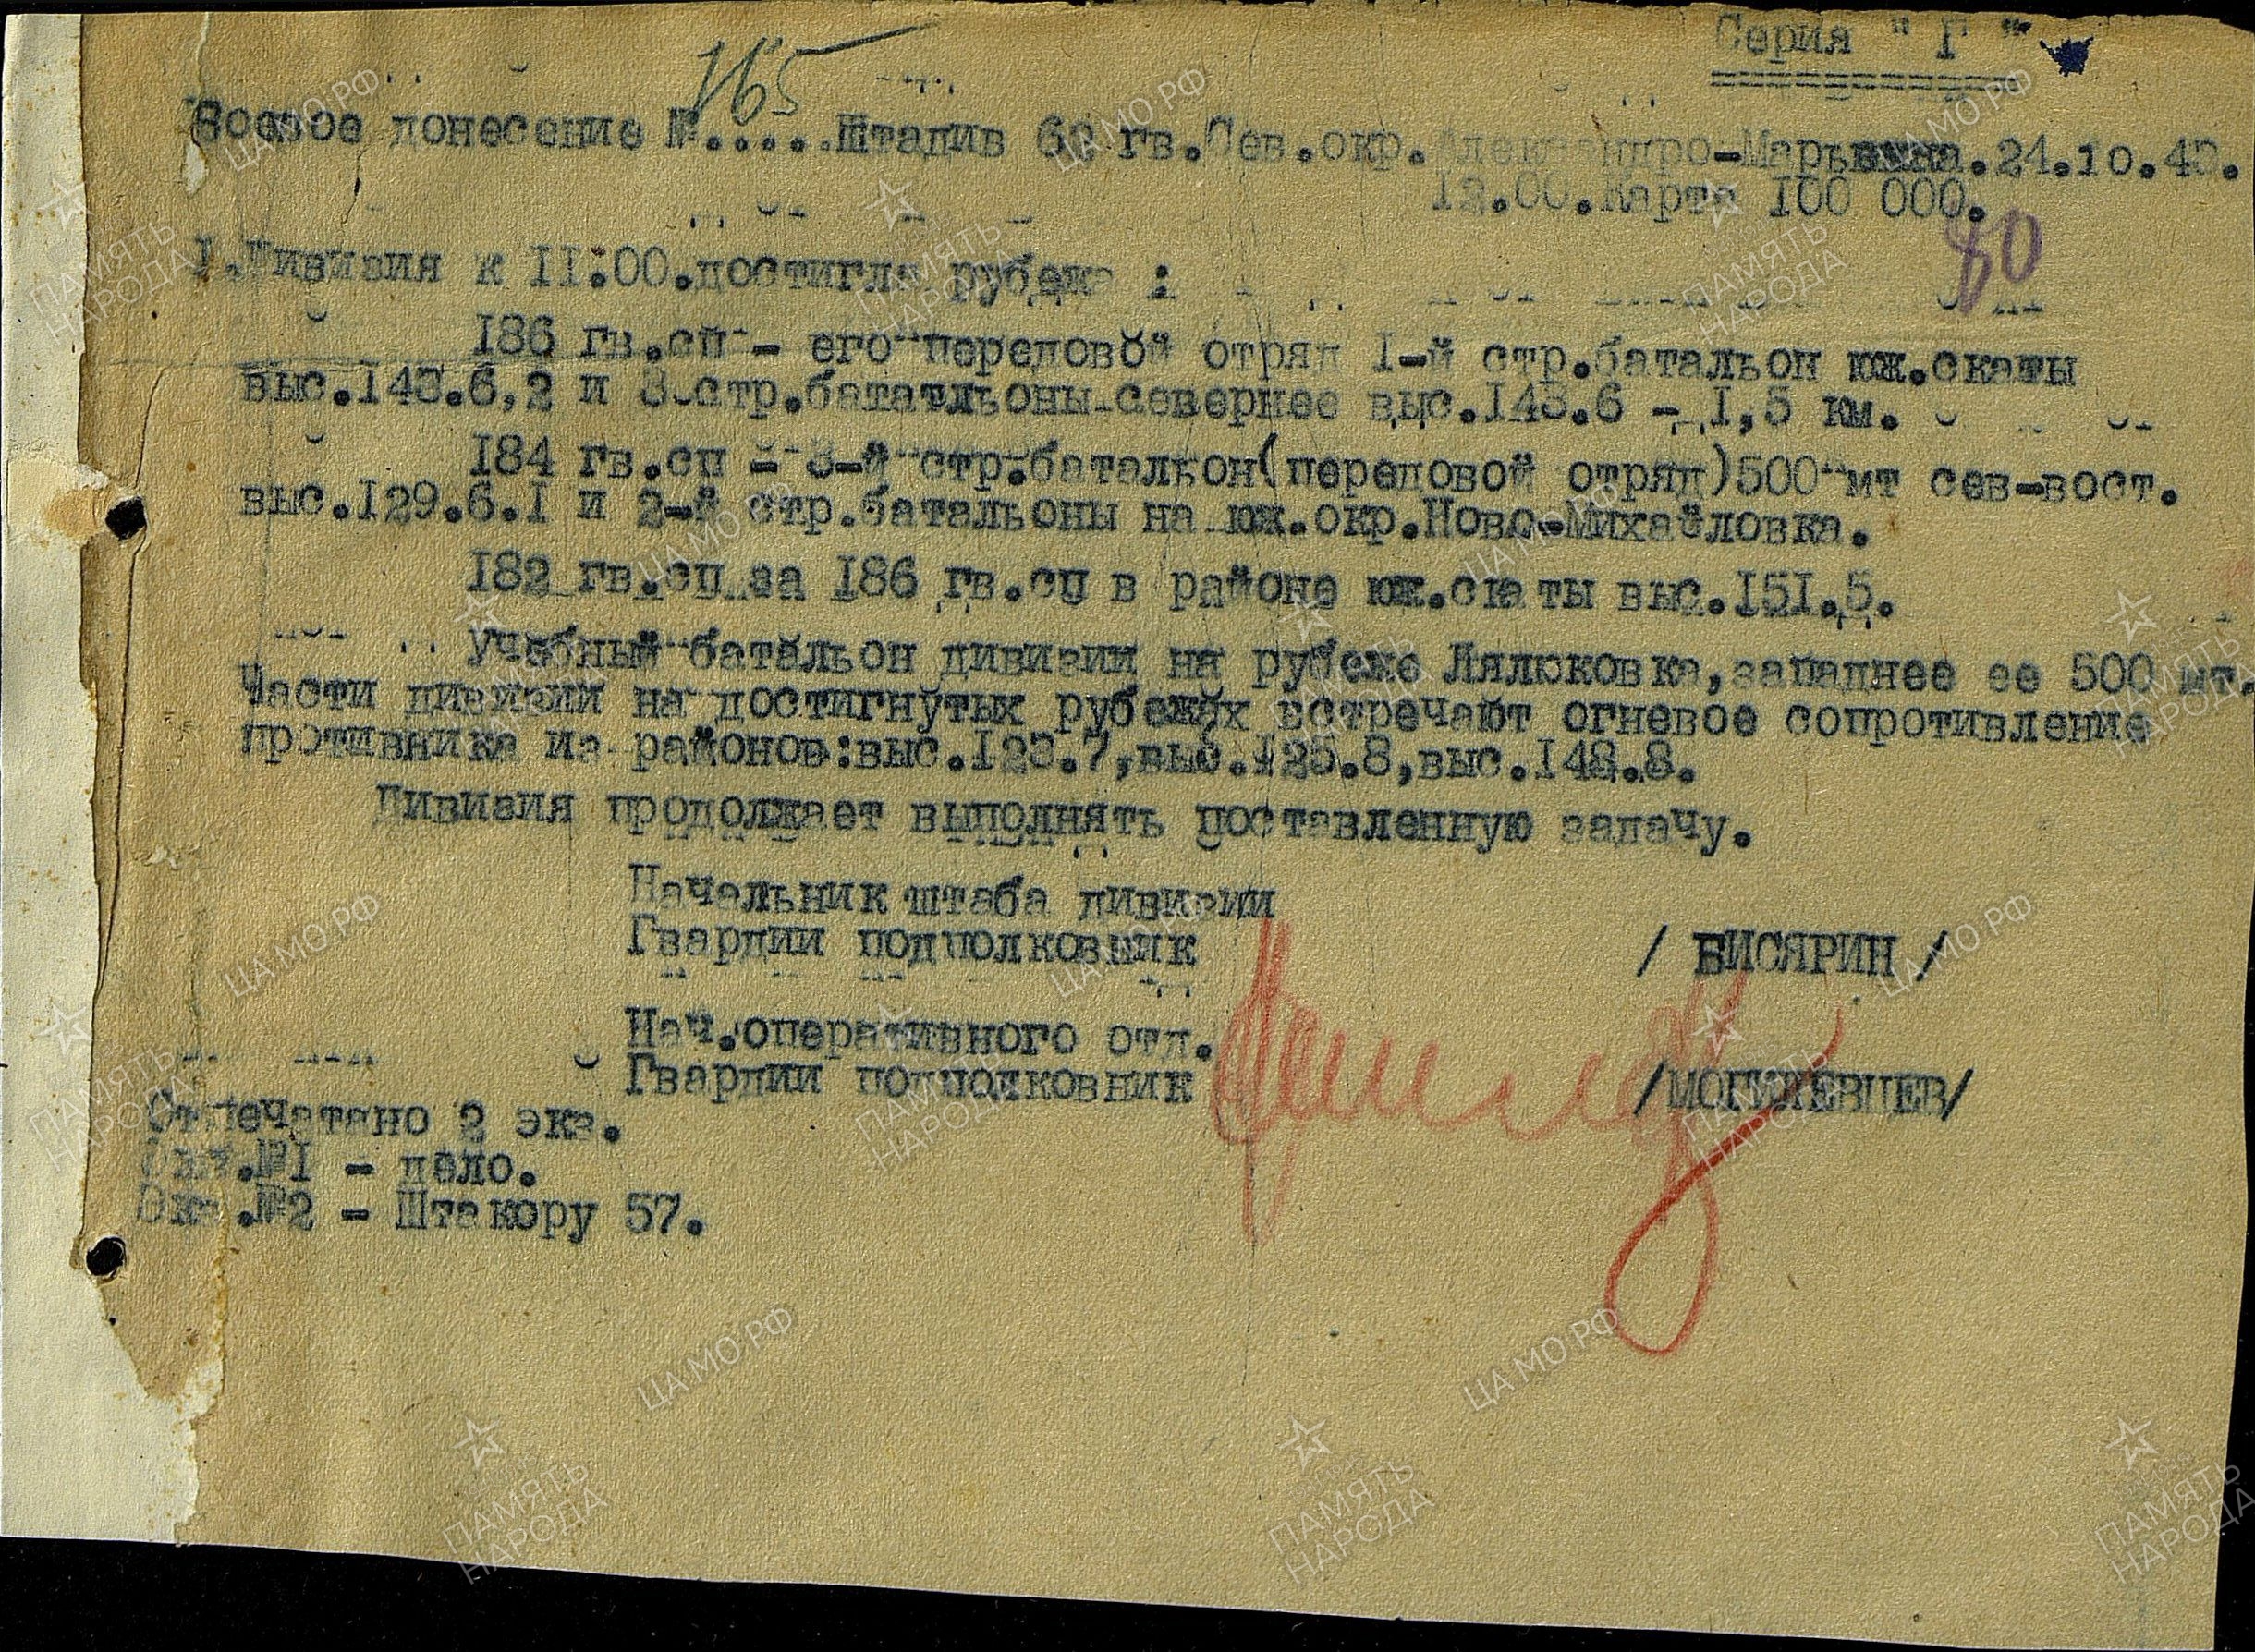 Серия " Г "
165
Боевое донесение №.....Штадив 62 гв.Сев.окр.Александро-Марьевка.24.10.43.
12.00.Карта 100 000.
80
1.Дивизия к 11:00.достигла рубежа :
186 гв.сп - его передовой отряд 1-й стр.батальон юж.скаты
выс.143.6,2 и 3 стр.бататльоны севернее выс.143.6 - 1,5 км.
184 гв.сп - 3-й стр.батальон(передовой отряд)500 мт сев-вост.
выс.129.6.1 и 2-й стр.батальоны на юж.окр.Ново-Михайловка.
182 гв.сп за 186 гв.сп в районе юж.скаты выс.151.5.
учебный батальон дивизии на рубеже Лялюковка,западнее ее 500 мт.
Части дивизии на достигнутых рубежах встречают огневое сопротивление
противника из районов:выс.123.7,выс.125.8,выс.148.8.
Дивизия продолжает выполнять поставленную задачу.
Начальник штаба дивизии
Гвардии подполковник / БИСЯРИН /
Нач.оперативного отд.
Гвардии подполковник /МОГИЛЕВЦЕВ/
Отпечатано 2 экз.
Экз.№1 - дело.
Экз.№2 - Штакору 57.
ЦА МО РФ
ПАМЯТЬ НАРОДА